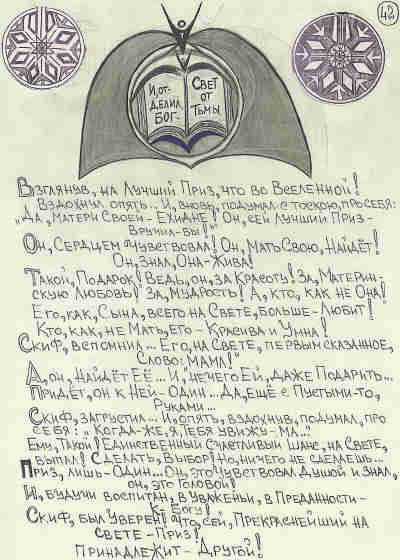 42
И, ОТ-
ДЕЛИЛ
БОГ-
СВЕТ
ОТ
ТЬМЫ
ВЗГЛЯНУВ, НА ЛУЧШИЙ ПРИЗ, ЧТО ВО ВСЕЛЕННОЙ!
И, ВЗДОХНУЛ ОПЯТЬ... И, ВНОВЬ, ПОДУМАЛ С ТОСКОЮ, ПРО СЕБЯ:
"ДА, МАТЕРИ СВОЕЙ - ЕХИДНЕ! ОН, СЕЙ ЛУЧШИЙ ПРИЗ -
ВРУЧИЛ-БЫ!"
ОН, СЕРДЦЕМ ЧУВСТВОВАЛ! ОН, МАТЬ СВОЮ, НАЙДЁТ!
ОН, ЗНАЛ, ОНА - ЖИВА!
ТАКОЙ, ПОДАРОК! ВЕДЬ, ОН, ЗА КРАСОТУ! ЗА, МАТЕРИН-
СКУЮ ЛЮБОВЬ! ЗА, МУДРОСТЬ! А, КТО, КАК НЕ ОНА!
ЕГО, КАК, СЫНА, ВСЕГО НА СВЕТЕ, БОЛЬШЕ - ЛЮБИТ!
КТО, КАК, НЕ МАТЬ, ЕГО - КРАСИВА И УМНА!
СКИФ, ВСПОМНИЛ... ЕГО, НА СВЕТЕ, ПЕРВЫМ СКАЗАННОЕ,
СЛОВО: МАМА!"
А, ОН, НАЙДЁТ ЕЁ... И, НЕЧЕГО ЕЙ, ДАЖЕ ПОДАРИТЬ...
ПРИДЁТ, ОН К НЕЙ - ОДИН... ДА, ЕЩЁ С ПУСТЫМИ-ТО,
РУКАМИ...
СКИФ, ЗАГРУСТИЛ... И, ОПЯТЬ, ВЗДОХНУВ, ПОДУМАЛ, ПРО
СЕБЯ: "КОГДА-ЖЕ, Я, ТЕБЯ УВИЖУ - МА...?
ЕМУ, ТАКОЙ! ЕДИНСТВЕННЫЙ СЧАСТЛИВЫЙ ШАНС, НА СВЕТЕ,
ВЫПАЛ! СДЕЛАТЬ, ВЫБОР! НО, НИЧЕГО НЕ СДЕЛАЕШЬ...
ПРИЗ, ЛИШЬ - ОДИН... ОН, ЭТО ЧУВСТВОВАЛ ДУШОЙ И ЗНАЛ,
ОН, ЭТО ГОЛОВОЙ!
И, БУДУЧИ ВОСПИТАН, В УВАЖЕНЬИ, В ПРЕДАННОСТИ -
К БОГУ!
СКИФ, БЫЛ УВЕРЕН! ЧТО, СЕЙ, ПРЕКРАСНЕЙШИЙ НА
СВЕТЕ - ПРИЗ!
ПРИНАДЛЕЖИТ - ДРУГОЙ!